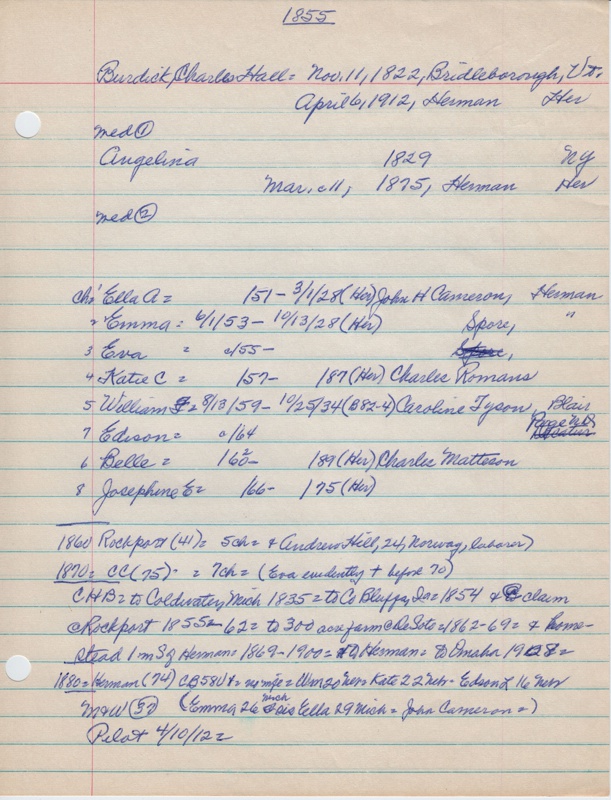 1855
Burdick, Charles Hall = Nov. 11, 1822, Bridleborough, Vt.
April 6, 1912, Herman Her
med ①
Angelina 1829 NY
Mar. c 11, 1875, Herman Her
med ②
ch = 1 Ella A = /51 - 3/1/28 (Her) John H Cameron, Herman
2 Emma = 6/1/53 - 10/13/28 (Her) Spore, "
3 Eva = c/55 - Spore,
4 Katie C = /57 - /87 (Her) Charles Romans
5 William = 8/13/59 - 10/25/34 (B82-4) Caroline Tyson, Blair
7 Edison = c/64
6 Belle = /62 - /89 (Her) Charles Matteson
8 Josephine E = /66 - /75 (Her)
1860 Rockport (41) = 5 ch = & Andrew Hill, 24, Norway, laborer)
1870 = CC (75) = 7 ch = (Eva evidently + before 70)
CHB = to Coldwater, Mich 1835 = to Co Bluffs, Ia = 1854 & claim
c Rockport 1855 - 62 = to 300 acre farm c De Soto = 1862-69 = & home-
stead 1 m S of Herman = 1869-1900 = to Herman = to Omaha 1908 =
1880 = Herman (74) CB 58 Vt = no wife = Wm 20 Neb Kate 22 Neb - Edson L 16 Neb
M & W (37) (Emma 26 Mich Ella 29 Mich = John Cameron = )
Pilot 4/10/12 =